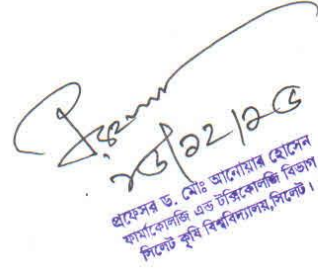 ২৬/১২/২৫
প্রফেসর ড. মোঃ আনোয়ার হোসেন
ফার্মাকোলজি এন্ড টক্সিকোলজি বিভাগ
সিলেট কৃষি বিশ্ববিদ্যালয়,সিলেট।